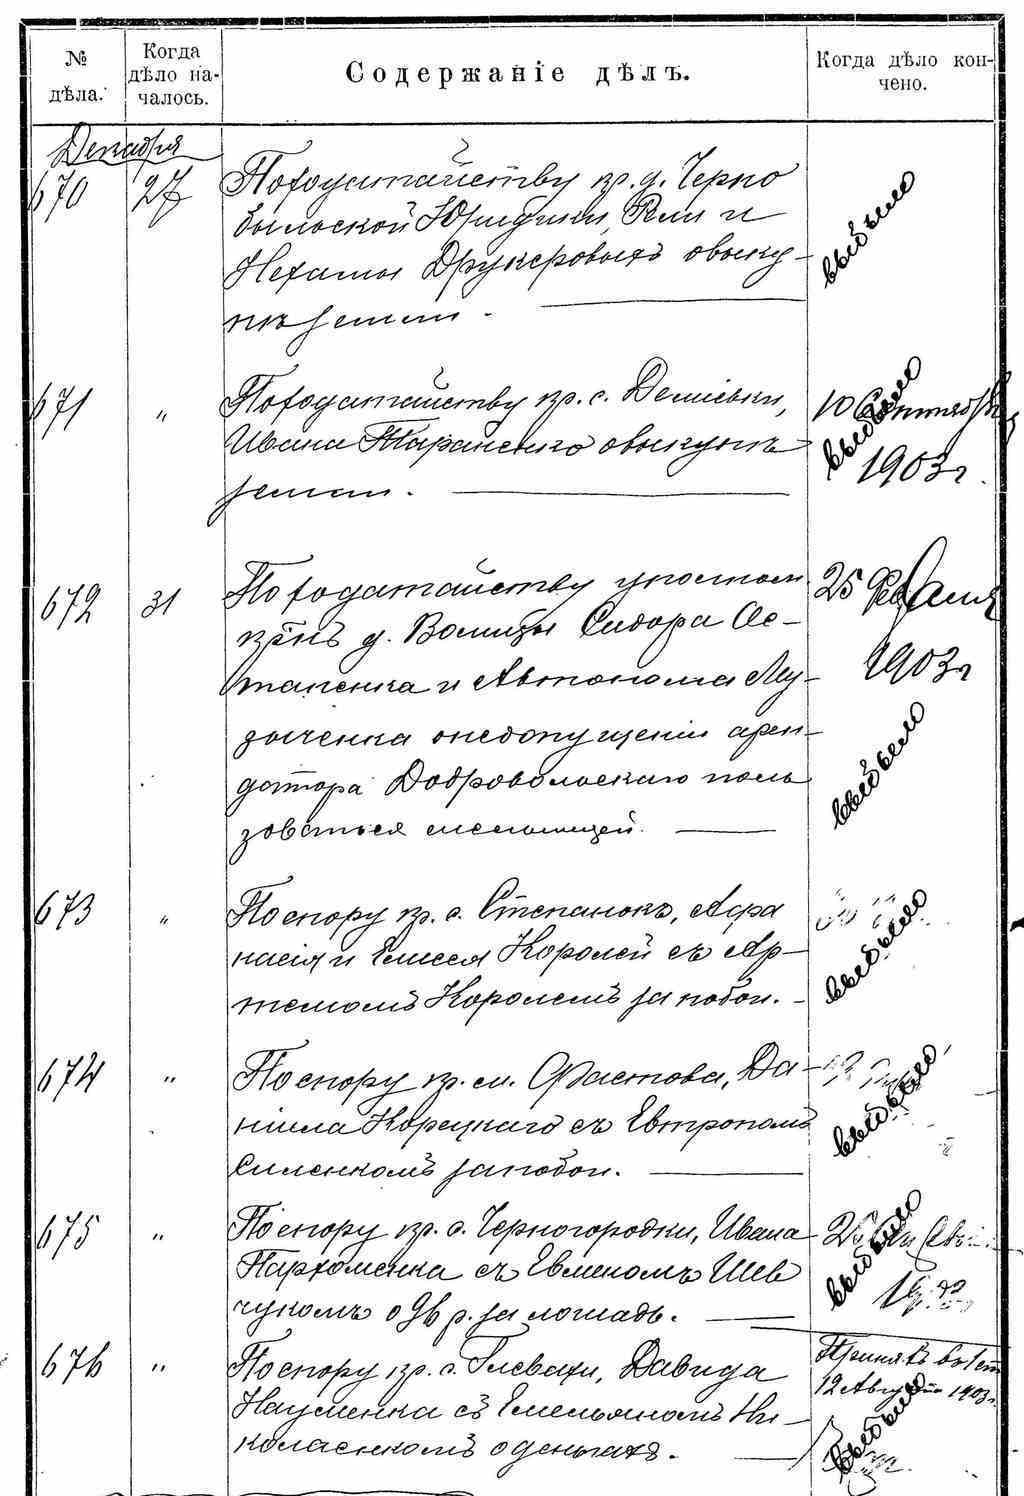 № дѣла.
Когда дѣло на-
чалось.
Содержаніе дѣлъ.
Когда дѣло кон-
чено.
Декабря
670 27 По ходатайству кр. д. Черно
быльской Юридики, Рли и
Нехамы Друкеровыхъ о выку-
пѣ земли. -
выбыло
671 " По ходатайству кр. с. Деміевки,
Ивана Тараненко о выкупѣ
земли.
10 Сентября
1903 г.
выбыло
672 31 По ходатайству уполном
кр-нъ д. Волицы Сидора Ос-
тапенка и Автонома Му-
зыченка о недопущеніи арен-
датора Добровольскаго поль
зоваться мельницей.
25 Февраля
1903 г
выбыло
673 " По спору кр. с. Степанокъ, Афа
насія и Елисея Королей съ Ар-
темомъ Королемъ за побои. -
выбыло
674 " По спору кр. м. Фастова, Да-
ніила Корецкаго съ Евтропомъ
Силенкомъ за побои.
выбыло
675 " По спору кр. с. Черногородки, Ивана
Пархоменка съ Евменомъ Шев
чукомъ о 96 р. за лошадь.
выбыло
676 " По спору кр. с. Глевахи, Давида
Науменка съ Емельяномъ Ни-
колаенкомъ о деньгахъ.
Принятъ
12 Августа 1903 г.
выбыло